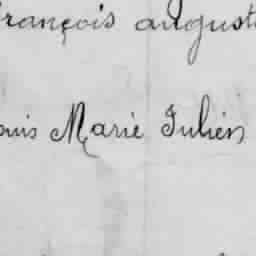 rançois august
ouis Marie Julien